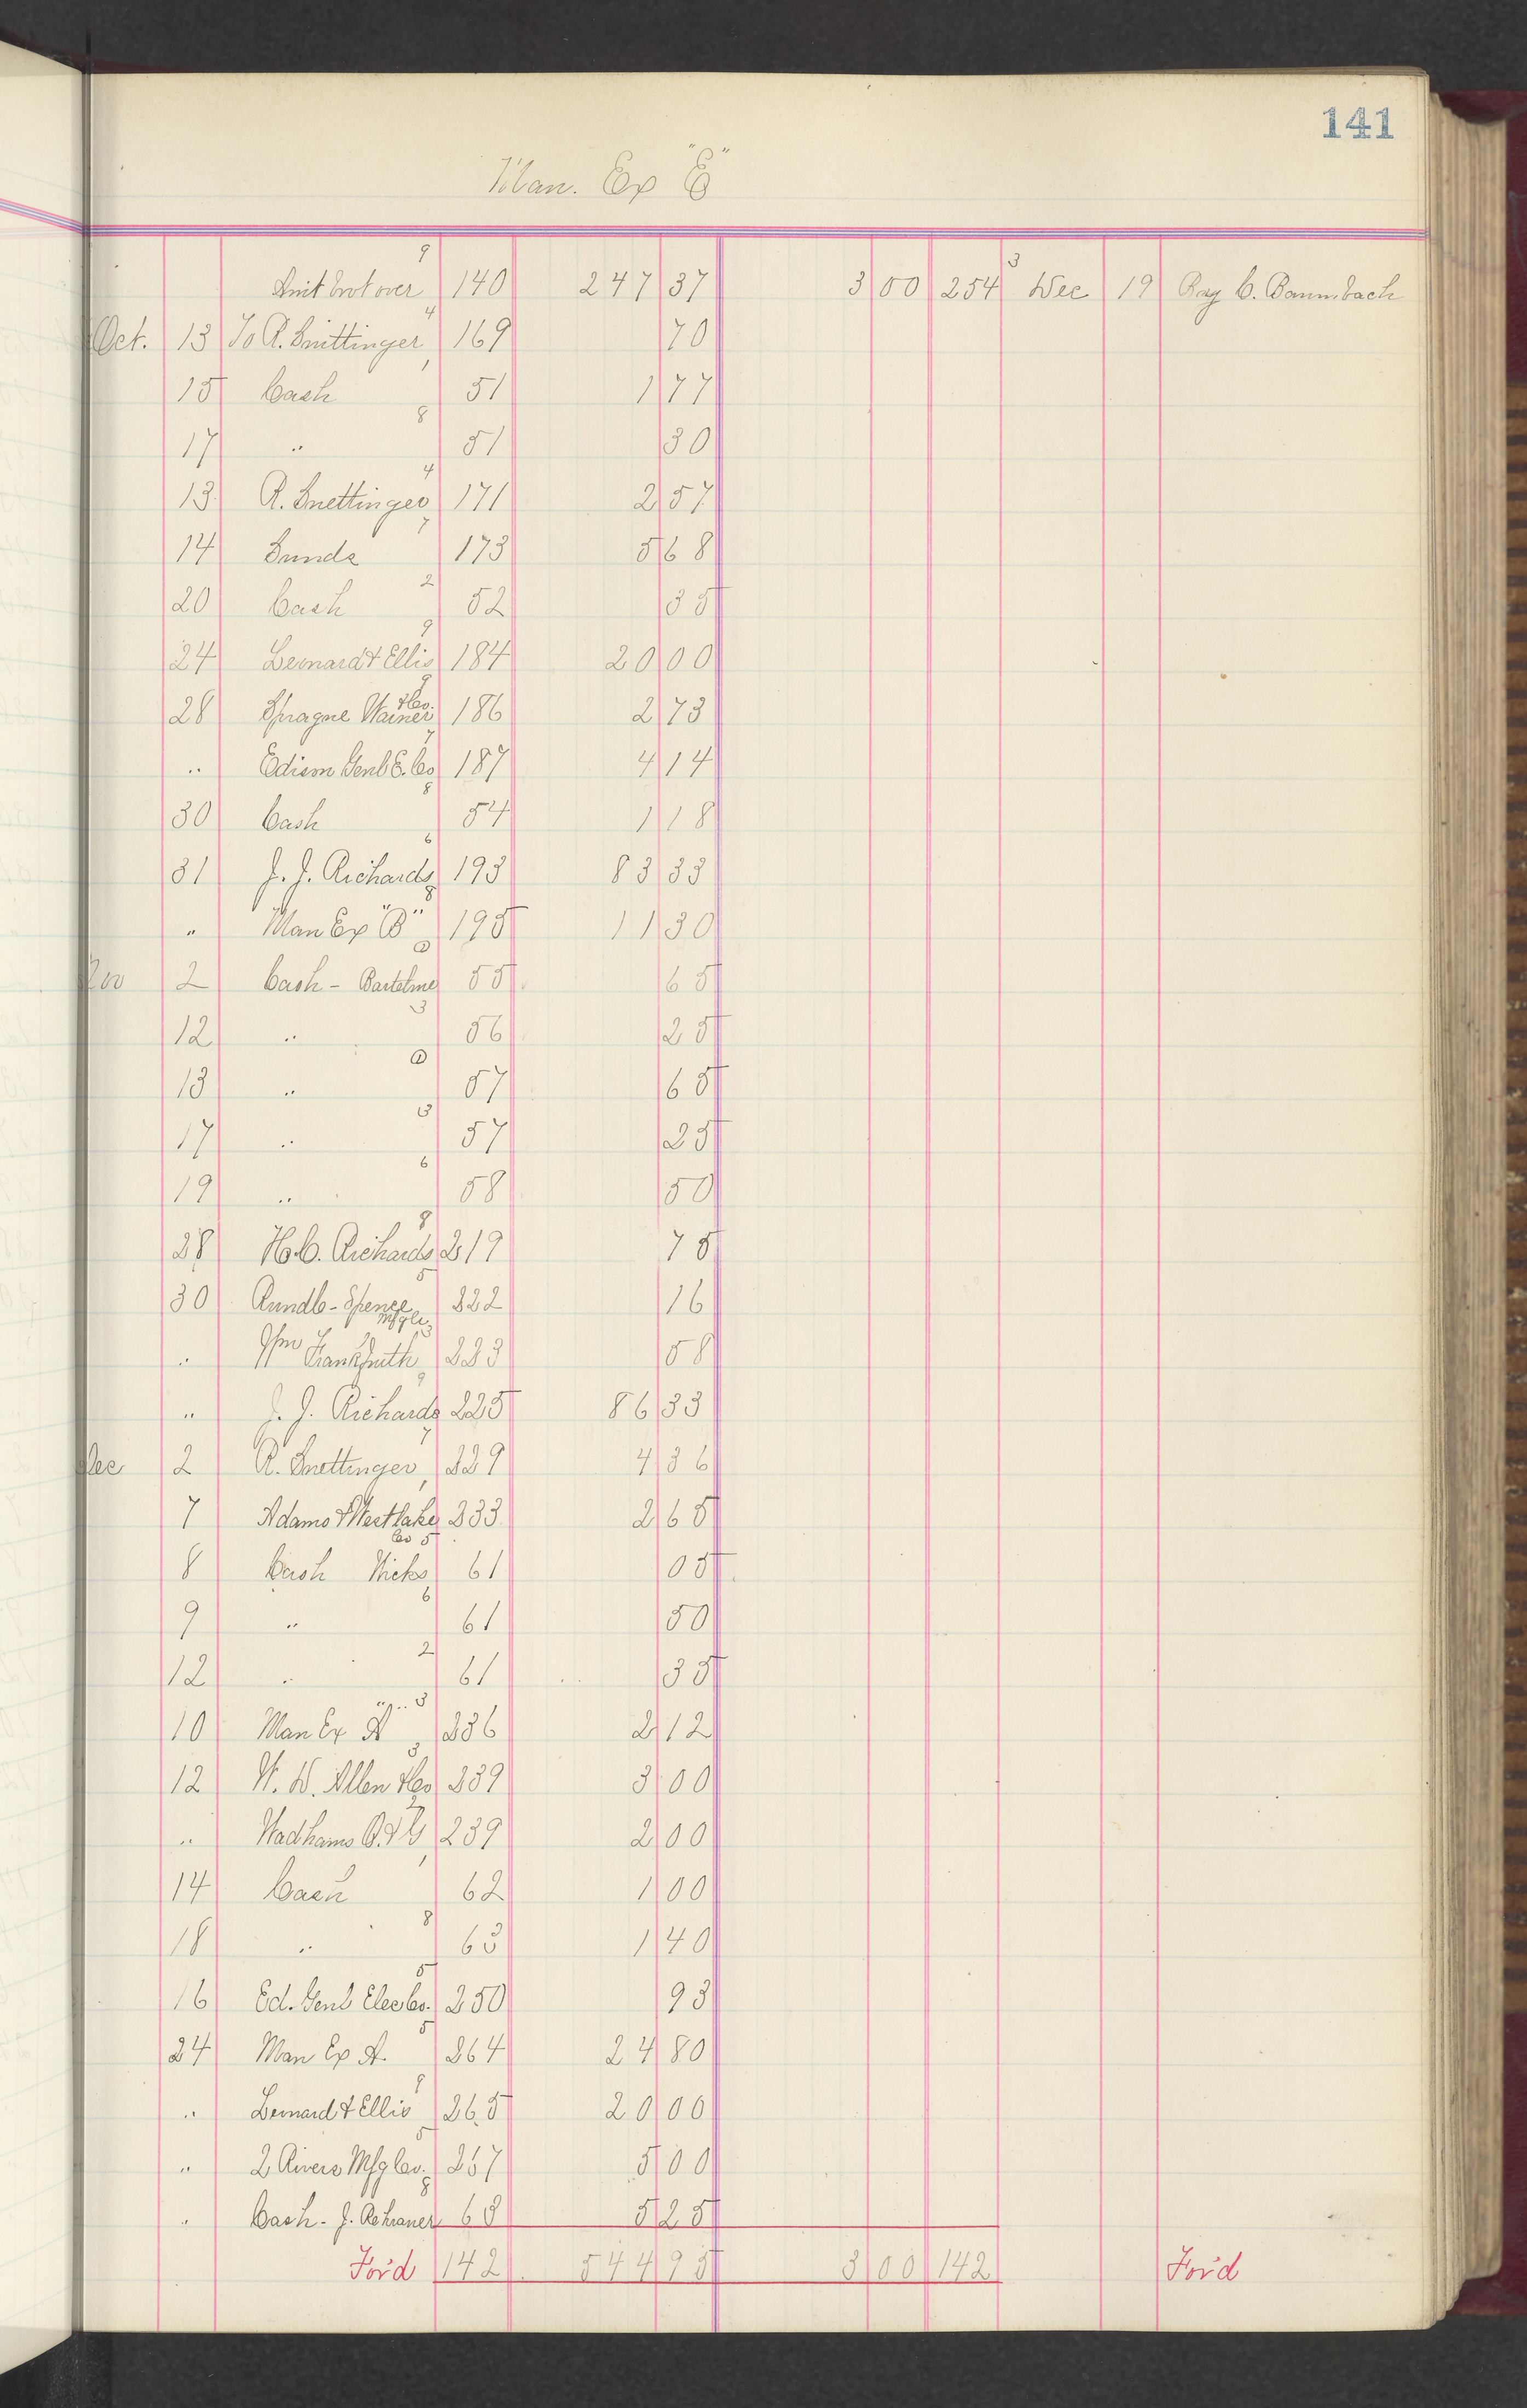 141
Man. Ex "E"
9
Amt brot over 140 247 37 3 00 254 3 Dec 19 Ray C. Baumbach
4
Oct. 13 To R. Snittinger 169 70
15 Cash 51 1 77
8
17 " 51 30
4
13 R. Snettinger 171 2 57
7
14 Sunds 173 5 68
2
20 Cash 52 35
9
24 Leonard & Ellis 184 20 00
9
28 Sprague Warner &Co. 186 2 73
7
" Edison Genl E. Co 187 4 14
8
30 Cash 54 1 18
6
31 J. J. Richards 193 83 33
8
" Man Ex "B" 195 11 30
Nov 2 Cash - Bartelme 55 65
3
12 " 56 25
13 " 57 65
3
17 " 57 25
6
19 " 58 50
8
28 H. C. Richards 219 75
5
30 Rundle-Spence Mfg Co 222 16
3
" Wm Frankfurth 223 58
9
" J. J. Richards 225 86 33
7
Dec 2 R. Snettinger 229 4 36
7 Adams & Westlake Co 233 2 65
5
8 Cash Wicks 61 05
6
9 " 61 50
2
12 " 61 35
3
10 Man Ex "A" 236 2 12
3
12 W. D. Allen &Co 239 3 00
" Wadhams O. & G 239 2 00
14 Cash 62 1 00
8
18 " 63 1 40
5
16 Ed. Genl Elec Co. 250 93
5
24 Man Ex A. 264 24 80
9
" Leonard & Ellis 265 20 00
5
" 2 Rivers Mfg Co. 267 5 00
8
" Cash - J. 63 5 25
For'd 142 544 95 3 00 142 For'd